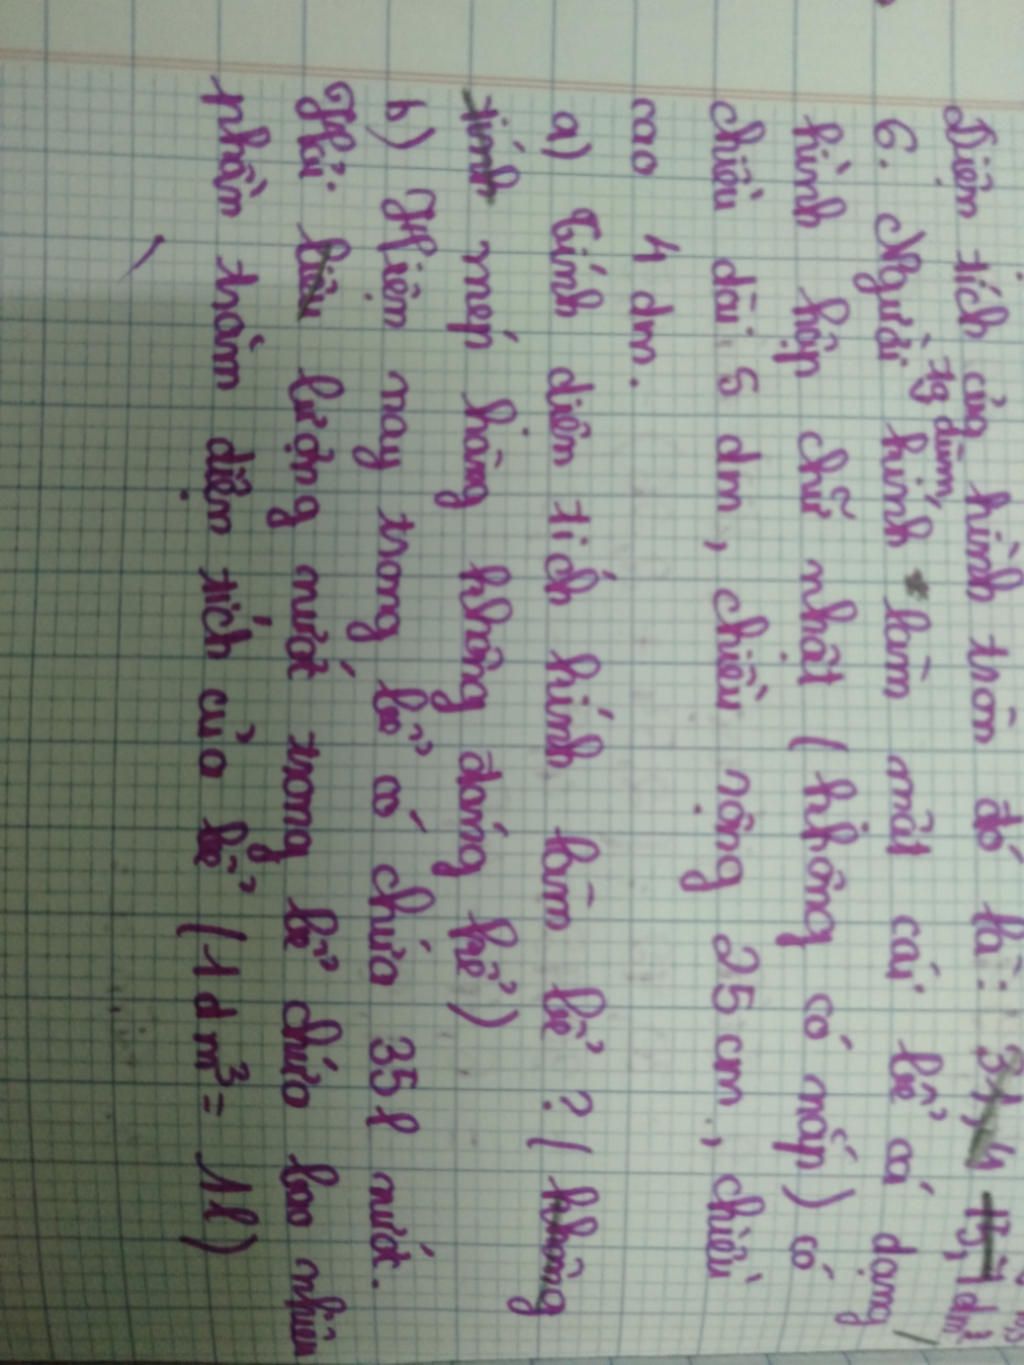 Diện tích của hình tròn đó là: 31,4 dm²
6. Người tg dùng kính làm một cái bể có dạng
hình hộp chữ nhật (không có nắp) có
chiều dài 5 dm, chiều rộng 25 cm, chiều
cao 4 dm.
a) Tính diện tích kính làm bể? (không
tính mép hàng không đáng kể)
b) Hiện nay trong bể có chứa 35l nước.
Hỏi lượng nước trong bể chứa bao nhiêu
phần trăm diện tích của bể (1dm³= 1l)